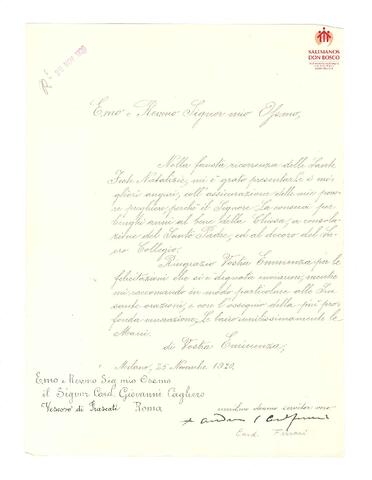 SALESIANOS
DON BOSCO
R.
Emo e Revmo Signor mio Ossmo,
Nella fausta ricorrenza delle Sante
Feste Natalizie, mi è grato presentarLe i mi-
gliori auguri, coll'assicurazione delle mie pove-
re preghiere, perchè il Signore La conservi per
lunghi anni al bene della Chiesa, a consola-
zione del Santo Padre, ed al decoro del Sa-
cro Collegio.
Ringrazio Vostra Eminenza per le
felicitazioni che si è degnata inviarmi, mentre
mi raccomando in modo particolare alle Sue
sante orazioni, e con l'ossequio della più pro-
fonda venerazione, Le bacio umilissimamente le
Mani.
di Vostra Eminenza,
Milano, 25 Novembre 1920.
Emo e Revmo Sig. mio Ossmo
il Signor Card. Giovanni Cagliero
Vescovo di Frascati Roma
servitor vero
+ Andrea C. Card.
Card. Ferrari